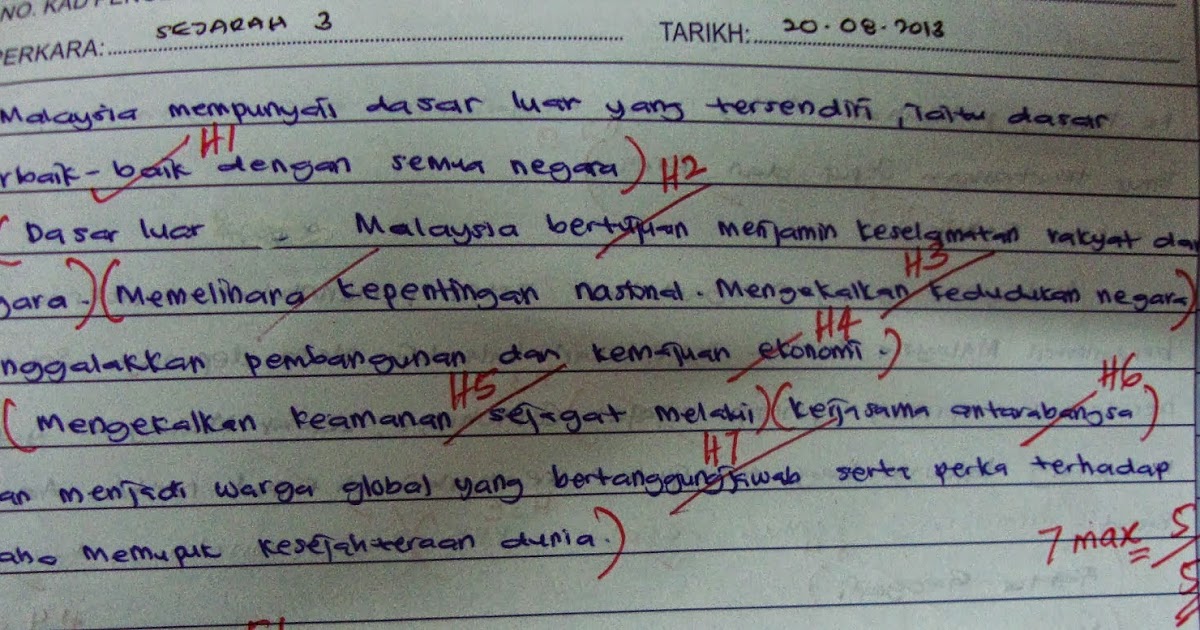 NO. KAD PEN
PERKARA: SEJARAH 3 TARIKH: 20.08.2013
Malaysia mempunyai dasar luar yang tersendiri, iaitu dasar
rbaik-baik dengan semua negara) H1
H2
(Dasar luar - Malaysia bertujuan menjamin keselamatan rakyat dan
gara.) (Memelihara kepentingan nasional. Mengekalkan kedudukan negara) H3
nggalakkan pembangunan dan kemajuan ekonomi.) H4
(mengekalkan keamanan sejagat melalui) (kerjasama antarabangsa) H5 H6
an menjadi warga global yang bertanggungjawab serta perka terhadap H7
aho memupuk kesejahteraan dunia.)
7 max 5/5